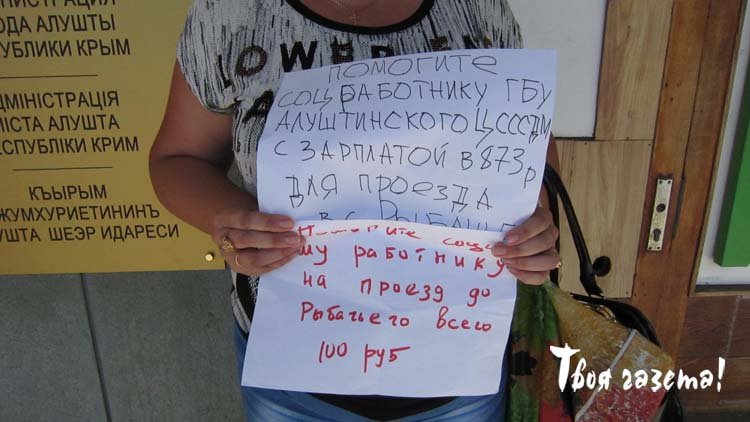 НИСТРАЦИЯ
ОДА АЛУШТЫ
УБЛИКИ КРЫМ
ДМІНІСТРАЦІЯ
ІСТА АЛУШТА
ЕСПУБЛІКИ КРИМ
КЪЫРЫМ
ЖУМХУРИЕТИНИНЪ
УШТА ШЕЭР ИДАРЕСИ
ПОМОГИТЕ
СОЦРАБОТНИКУ ГБУ
АЛУШТИНСКОГО ЦСССДМ
С ЗАРПЛАТОЙ В 873р
ДЛЯ ПРОЕЗДА
В С. РЫБАЧЬЕ
Помогите социаль
му работнику
на проезд до
Рыбачьего всего
100 руб
Твоя газета!